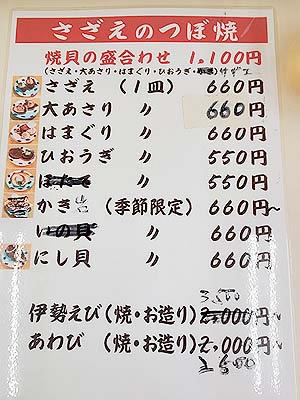 さざえのつぼ焼
焼貝の盛合わせ 1,100円
(さざえ・大あさり・はまぐり・ひおうぎ・
さざえ (1皿) 660円
大あさり 〃 660円
はまぐり 〃 660円
ひおうぎ 〃 550円
ほたて 〃 550円
かき (季節限定) 660円~
いの貝 〃 660円
にし貝 〃 660円
3,500
伊勢えび(焼・お造り)2,000円~
あわび (焼・お造り)2,000円~
2500